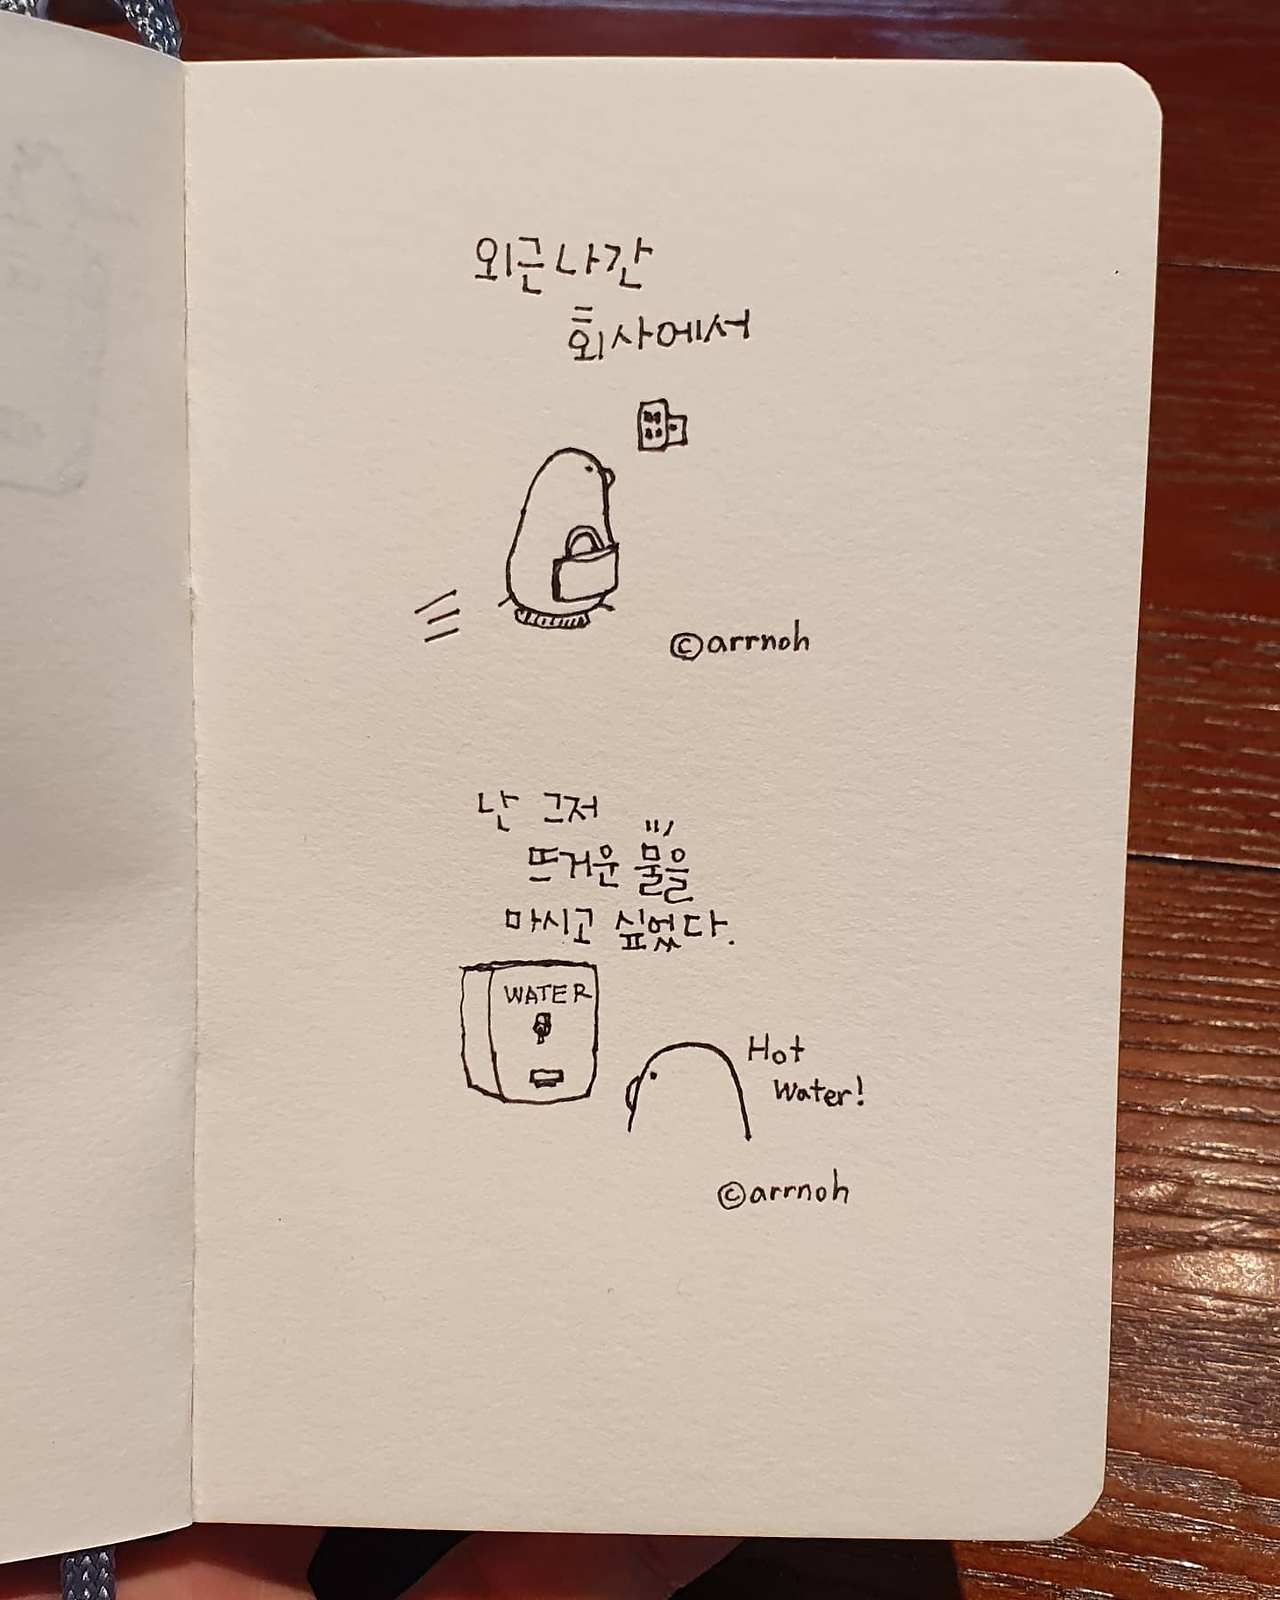 외근 나간
회사에서
©arrnoh
난 그저
뜨거운 물을
마시고 싶었다.
WATER
Hot
Water!
©arrnoh